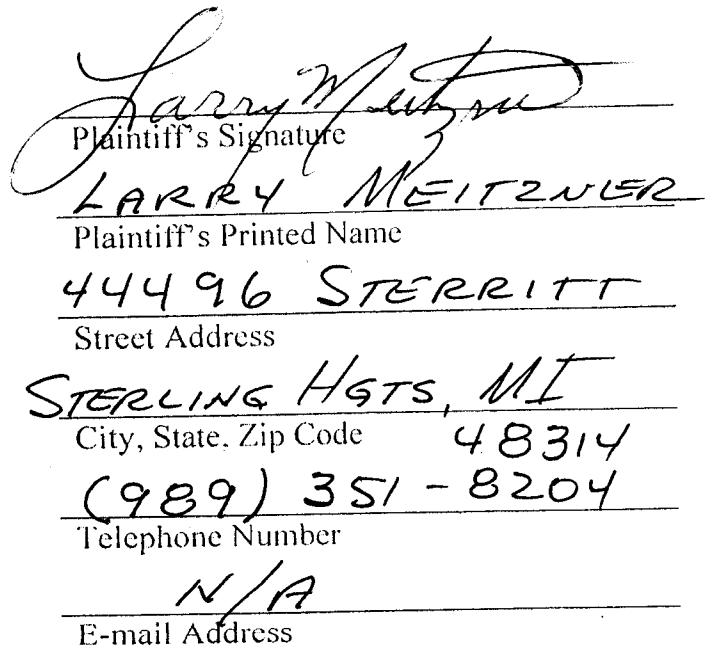 Larry Meitzner
Plaintiff's Signature
LARRY MEITZNER
Plaintiff's Printed Name
44496 STERRITT
Street Address
STERLING HGTS, MI
City, State, Zip Code 48314
(989) 351-8204
Telephone Number
N/A
E-mail Address